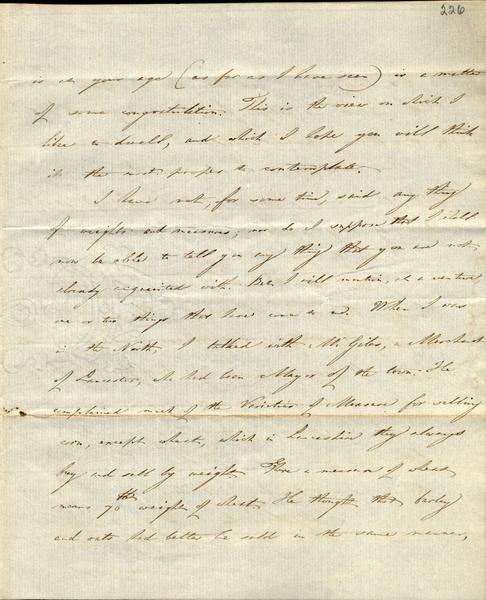 226
is at your age (as far as I have seen) is a matter
of some congratulation. This is the view on which I
like to dwell, and which I hope you will think
is the most proper to contemplate.
I have not, for some time, said any thing
of weights and measures; nor do I suppose that I shall
now be able to tell you any thing that you are not
already acquainted with. But I will mention, at a venture
one or two things that have come to me. When I was
in the North, I talked with Mr Giles, a Merchant
of Lancaster, who had been Mayor of the town. He
complained much of the Varieties of Measure for selling
corn, except wheat, which in Lancashire they always
buy and sell by weight. There a measure of wheat
means 70 lb weight of wheat. He thought that barley
and oats had better be sold in the same manner,